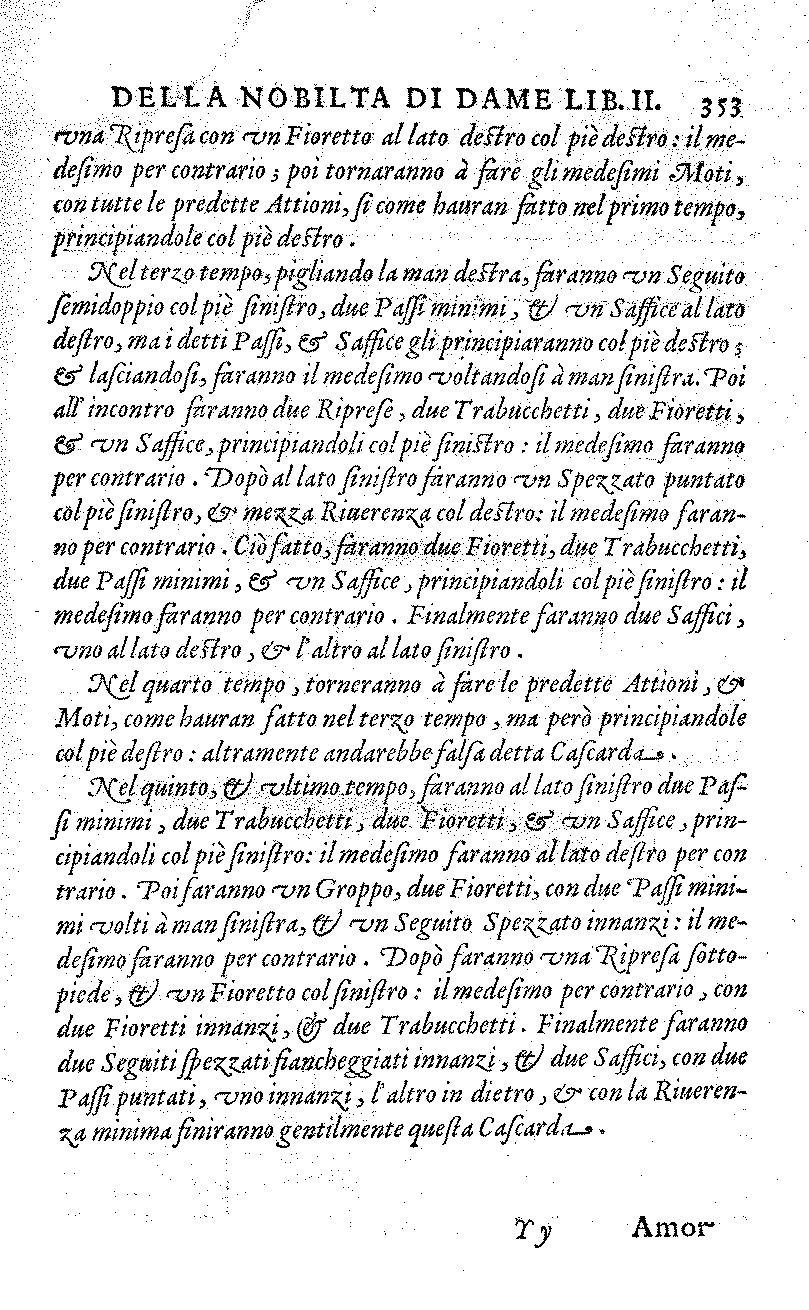 DELLA NOBILTA DI DAME LIB. II. 353
vna Ripresa con vn Fioretto al lato destro col piè destro: il me-
desimo per contrario; poi tornaranno à fare gli medesimi Moti,
con tutte le predette Attioni, si come hauran fatto nel primo tempo,
principiandole col piè destro.
Nel terzo tempo, pigliando la man destra, faranno vn Seguito
semidoppio col piè sinistro, due Passi minimi, & vn Saffice al lato
destro, ma i detti Passi, & Saffice gli principiaranno col piè destro;
& lasciandosi, faranno il medesimo voltandosi à man sinistra. Poi
all' incontro faranno due Riprese, due Trabucchetti, due Fioretti,
& vn Saffice, principiandoli col piè sinistro: il medesimo faranno
per contrario. Dopò al lato sinistro faranno vn Spezzato puntato
col piè sinistro, & mezza Riuerenza col destro: il medesimo faran-
no per contrario. Ciò fatto, faranno due Fioretti, due Trabucchetti,
due Passi minimi, & vn Saffice, principiandoli col piè sinistro: il
medesimo faranno per contrario. Finalmente faranno due Saffici,
vno al lato destro, & l'altro al lato sinistro.
Nel quarto tempo, torneranno à fare le predette Attioni, &
Moti, come hauran fatto nel terzo tempo, ma però principiandole
col piè destro: altramente andarebbe falsa detta Cascarda.
Nel quinto, & vltimo tempo, faranno al lato sinistro due Pas-
si minimi, due Trabucchetti, due Fioretti, & vn Saffice, prin-
cipiandoli col piè sinistro: il medesimo faranno al lato destro per con
trario. Poi faranno vn Groppo, due Fioretti, con due Passi mini-
mi volti à man sinistra, & vn Seguito Spezzato innanzi: il me-
desimo faranno per contrario. Dopò faranno vna Ripresa sotto-
piede, & vn Fioretto col sinistro: il medesimo per contrario, con
due Fioretti innanzi, & due Trabucchetti. Finalmente faranno
due Seguiti spezzati fiancheggiati innanzi, & due Saffici, con due
Passi puntati, vno innanzi, l'altro in dietro, & con la Riueren-
za minima finiranno gentilmente questa Cascarda.
Yy Amor